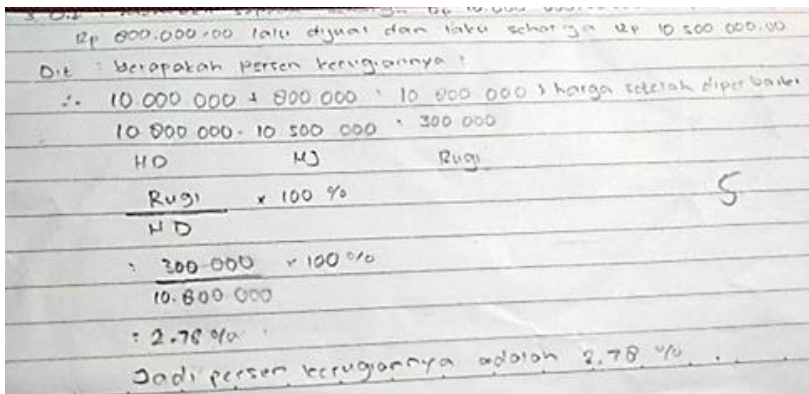 Rp 800.000.00 lalu dijual dan laku seharga Rp 10 500 000.00
Dit : berapakah persen kerugiannya ?
∴ 10 000 000 + 800 000 : 10 800 000 > harga setelah diperbaiki
10 800 000 - 10 500 000 : 300 000
HD HJ Rugi
Rugi x 100 %
HD
5
: 300 000 x 100 %
10.800 000
: 2.78 %
Jadi persen kerugiannya adalah 2.78 %